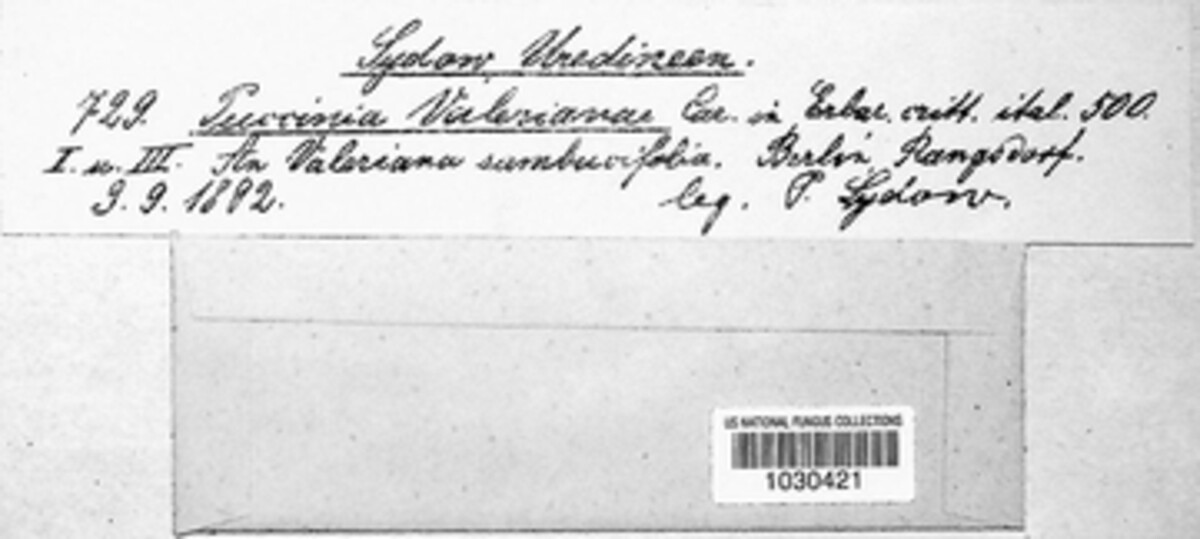 Sydow, Uredineen.
729. Puccinia Valerianae Car. in Erbar. critt. ital. 500.
I. u. III. An Valeriana sambucifolia. Berlin, Rangsdorf.
9. 9. 1892. leg. P. Sydow.
US NATIONAL FUNGUS COLLECTIONS
1030421